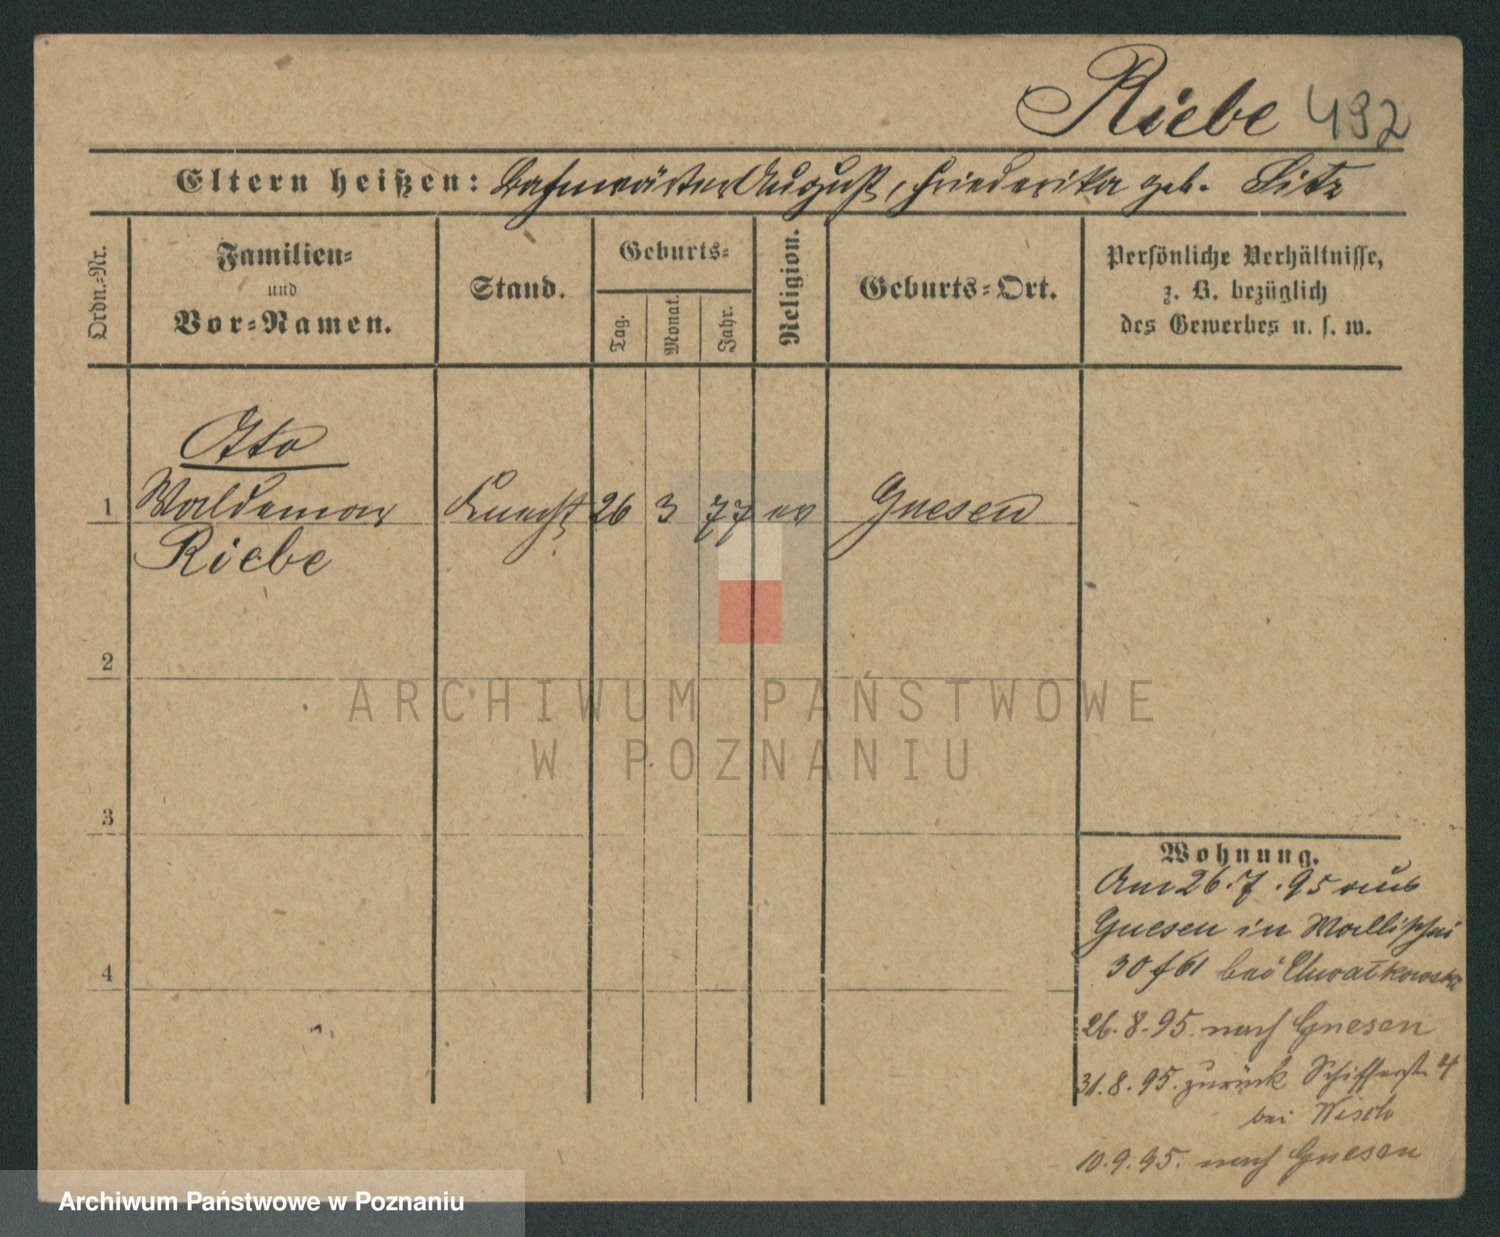 Riebe 492
Eltern heißen: Bahnwärter August, Friederika geb. Litz
Ordn.-Nr.
Familien-
und
Vor-Namen.
Stand.
Geburts-
Tag.
Monat.
Jahr.
Religion.
Geburts-Ort.
Persönliche Verhältnisse,
z. B. bezüglich
des Gewerbes u. s. w.
Otto
1 Waldemar Knecht 26 3 77 ev Gnesen
Riebe
2
ARCHIWUM PAŃSTWOWE
W POZNANIU
3
4
Wohnung.
Am 26.7.95 aus
Gnesen in Wallischei
30 f 61 bei Chwatkowski
26.8.95. nach Gnesen
31.8.95. zurück Schifferstr. 4
bei Wisch
10.9.95. nach Gnesen
Archiwum Państwowe w Poznaniu